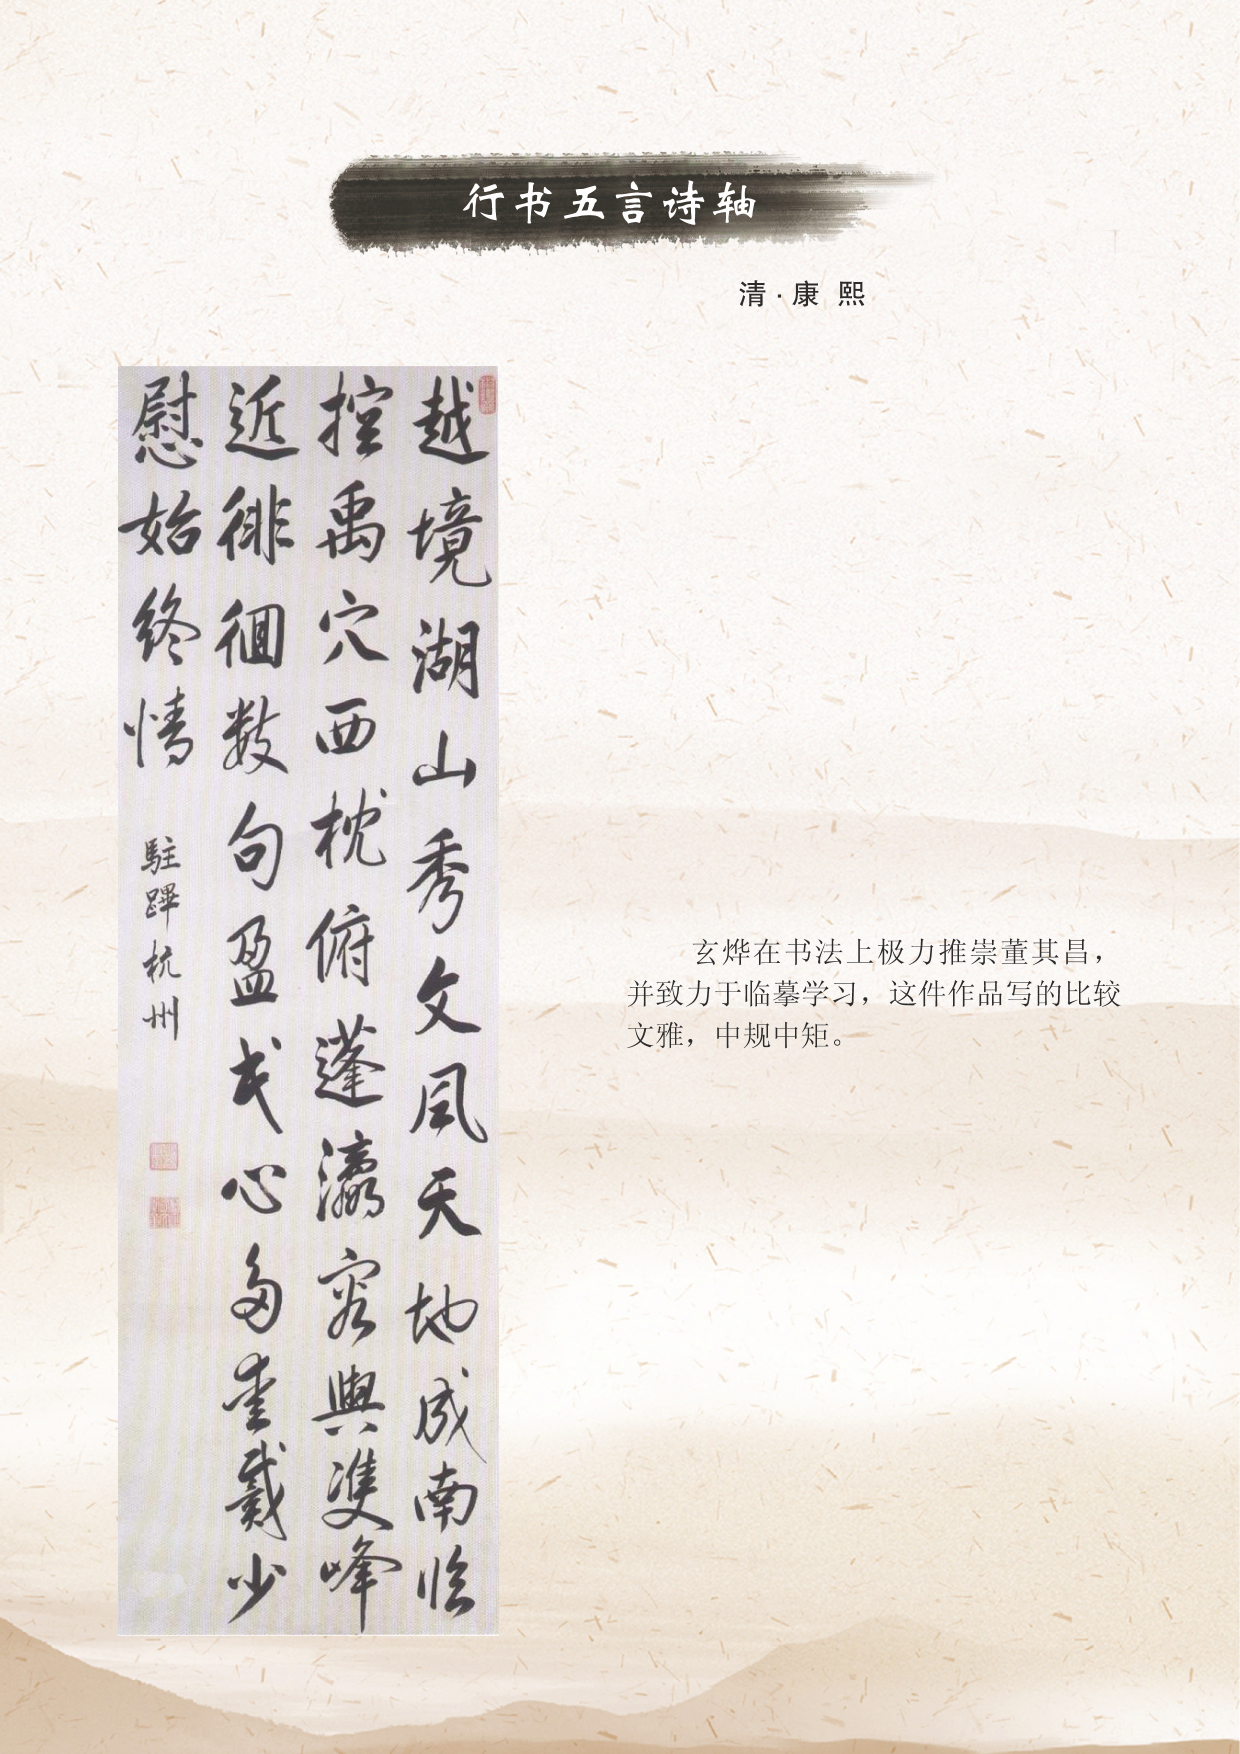 行书五言诗轴
清·康 熙
越境湖山秀文風天地成南臨
控禹穴西枕俯蓬瀛容與雙峰
近徘徊数句盈我心多愛戴少
慰始終情
駐蹕杭州
玄烨在书法上极力推崇董其昌，
并致力于临摹学习，这件作品写的比较
文雅，中规中矩。